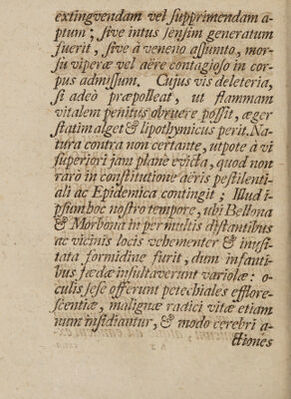 extingvendam vel supprimendam a-
ptum; sive intus sensim generatum
fuerit, sive à veneno assumto, mor-
sù viperæ vel aëre contagioso in cor-
pus admissum. Cujus vis deleteria,
si adeò præpolleat, ut flammam
vitalem penitus obruere possit, æger
statim alget & lipothymicus perit. Na-
tura contra non certante, utpote à vi
superiori jam plane evicta, quod non
rarò in constitutione aëris pestilenti-
ali ac Epidemica contingit; Illud i-
psum hoc nostro tempore, ubi Bellona
& Morbona in permultis distantibus
ac vicinis locis vehementer & inusi-
tata formidine furit, dum infanti-
bus fœdæ insultaverunt variolæ: o-
culis sese offerunt petechiales efflore-
scentiæ, malignæ radici vitæ etiam
num insidiantur, & modo cerebri a-
ctiones